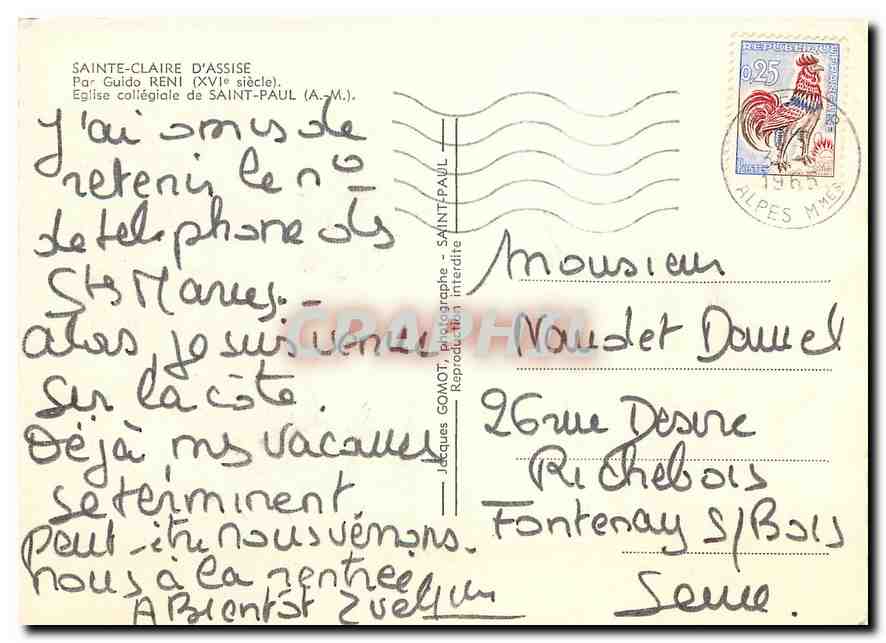 SAINTE-CLAIRE D'ASSISE
Par Guido RENI (XVIe siècle).
Eglise collégiale de SAINT-PAUL (A.-M.).
J'ai omis de
retenir le no
de telephone des
Stes Maries.
alors, je suis venue
sur la côte.
Déjà mes vacances
se terminent.
Peut-être nous verrons-
nous à la rentrée.
A Bientôt Evelyne
Jacques GOMOT, photographe - SAINT-PAUL
Reproduction interdite
REPUBLIQUE FRANCAISE
0,25
POSTES
1965
ALPES MMES
Monsieur
Naudet Daniel
26 rue Desire
Richebois
Fontenay s/Bois
Seine.
CPAPHIL